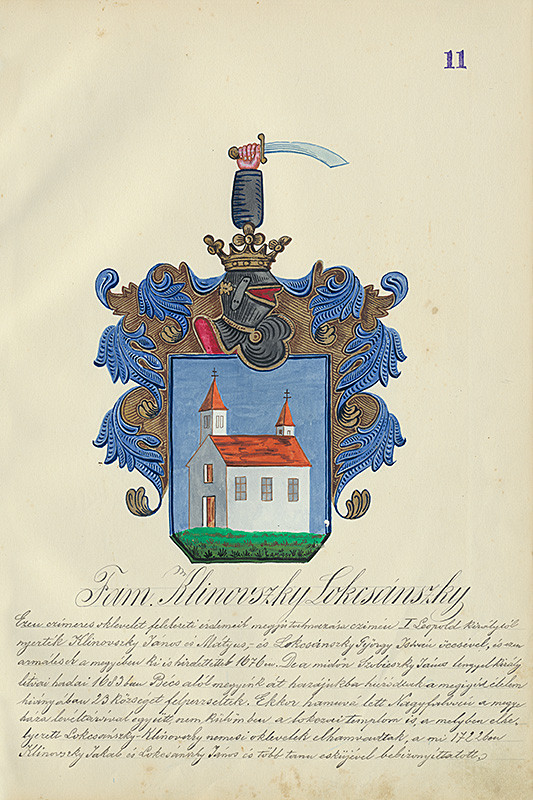 11
Fam. Klinovszky Lokcsánszky
Ezen czimeres oklevelet felebbiri érdemeik megjutalmazása czimén I. Leopold királytól
nyerték Klinovszky János és Mátyás,- és Lokcsánszky György István öcscsével, és azon
armálisok a megyében ki is hirdettettek 1676 ban. De a midőn Szobieszky János lengyel király
litvai hadai 1683 ban Bécs alól megyénk át hazájukba húzódtak a megigért élelem
hiányában 23 községet felperzseltek. Ekkor hamuvá lett Nagyfaluban a megye
háza levéltárával együtt, nem külömben a bobrovai templom is, a melyben elhe-
lyezett Lokcsánszky-Klinovszky nemesi oklevelek elhamvadtak, a mi 1722 ben
Klinovszky Jakab és Lokcsánszky János és több tanu esküjével bebizonyittatott.